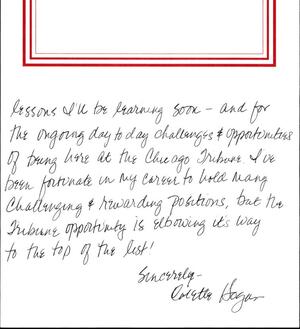 lessons I'll be learning soon – and for
the ongoing day to day challenges & opportunities
of being here at the Chicago Tribune I've
been fortunate in my career to hold many
challenging & rewarding positions, but the
Tribune opportunity is elbowing it's way
to the top of the list!
Sincerely–
Colette Hogan